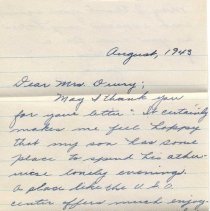 August, 1943
Dear Mrs.
May I thank you
for your letter. It certainly
makes me feel happy
that my son has some
place to spend his other-
wise lonely evening.
A place like the U.S.O.
center offers much enjoy-